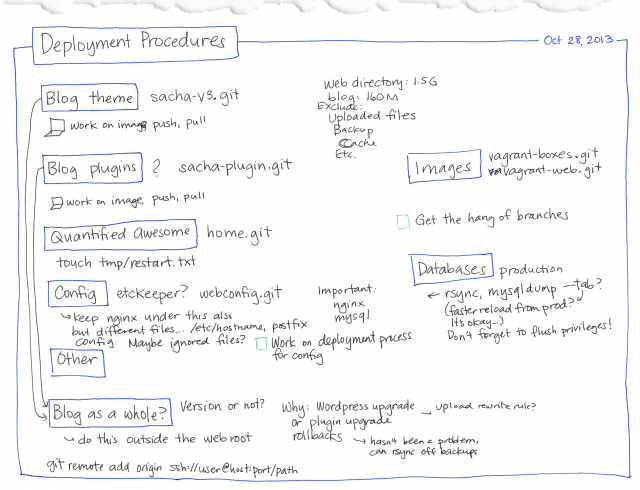 Deployment Procedures
Oct 28, 2013
Blog theme sacha-v3.git
work on image, push, pull
Web directory: 1.5G
blog: 160M
Exclude:
Uploaded files
Backup
Cache
Etc.
Blog plugins ? sacha-plugin.git
work on image, push, pull
Images vagrant-boxes.git
vagrant-web.git
Get the hang of branches
Quantified Awesome home.git
touch tmp/restart.txt
Databases production
← rsync, mysqldump --tab?
(faster reload from prod?
Its okay...)
Don't forget to flush privileges!
Config etckeeper? webconfig.git
↳ keep nginx under this also
but different files... /etc/hostname, postfix
config Maybe ignored files?
Important:
nginx
mysql
Work on deployment process
for config
Other
Blog as a whole? Version or not?
↳ do this outside the webroot
Why: Wordpress upgrade → upload rewrite rule?
or plugin upgrade
rollbacks ↳ hasn't been a problem,
can rsync off backups
git remote add origin ssh://user@host:port/path